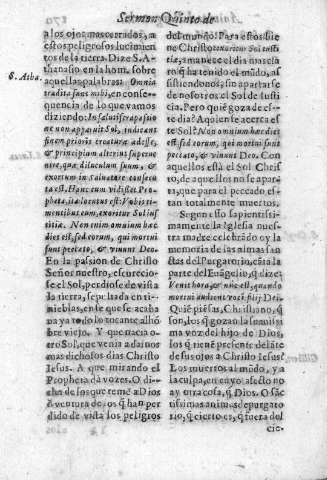 Sermon Quinto de
a los ojos mas cerrados, a
estos peligrosos lucimien
tos de la tierra. Dize S. A-
S. Atha.
thanasio en la hom. sobre
aquellas palabras: Omnia
tradita sunt mihi, en conse-
quencia de lo que vamos
diziendo: In salutifera passio
ne non apparuit Sol, indicans
finem prioris creaturæ adesse,
& principium alterius superue
nire, quæ diluculum suum, &
exortum in Saluatore consecu
ta est. Hanc cum vidisset Pro-
pheta, ita locutus est: Vobis ti-
mentibus eum, exorietur Sol iu
stitiæ. Non enim omnium hæc
dies est, sed eorum, qui mortui
sunt peccato, & viuunt Deo.
En la passion de Christo
Señor nuestro, escurecio-
se el Sol, perdiose de vista
la tierra, sepultada en ti-
nieblas, en fee que se acaba
va ya todo lo tocante al hō
bre viejo. Y que nacia o-
tro Sol, que venia a da r nos
mas dichosos dias Christo
Iesus. A que mirando el
Propheta dà vozes. O di-
cha de los que temē a Dios
a ventura de los q̃ han per
dido de vista los peligros
del mundo! Para estos vie
ne Christo, orietur Sol iusti
tiæ, amanece el dia nasce lo
q̃ ha tenido el mūdo, as-
sistiendonos, sin apartarse
de nosotros el Sol de Ius-
ticia. Pero quiē goza de es-
te dia? A quien te acerca es
te Sol? Non omnium hæc dies
est, sed eorum, qui mortui sunt
peccato, & viuunt Deo. Con
aquellos està el Sol Chris-
to, de aquellos no se apar-
ta, que para el peccado es-
tan totalmente muertos.
Segun esto sapientissi-
mamente la Iglesia nues-
tra madre celebrando oy la
memoria de las almas san
tas del Purgatorio, cāta la
parte del Euāgelio, q̃ dize:
Venit hora, & nūc est, quando
mortui audient vocē filij Dei.
Quiē piēsas, Christiano, q̃
son, los q̃ gozan la suauissi
ma voz del hijo de Dios,
los q̃ tienē presente delāte
de sus ojos a Christo Iesus?
Los muertos al mūdo, y a
la culpa, en cuyo afecto no
ay otra cosa, q̃ Dios. O sāc
tissimas animas de purgato
rio, q̃ cierto es, q̃ fuera del
cie-